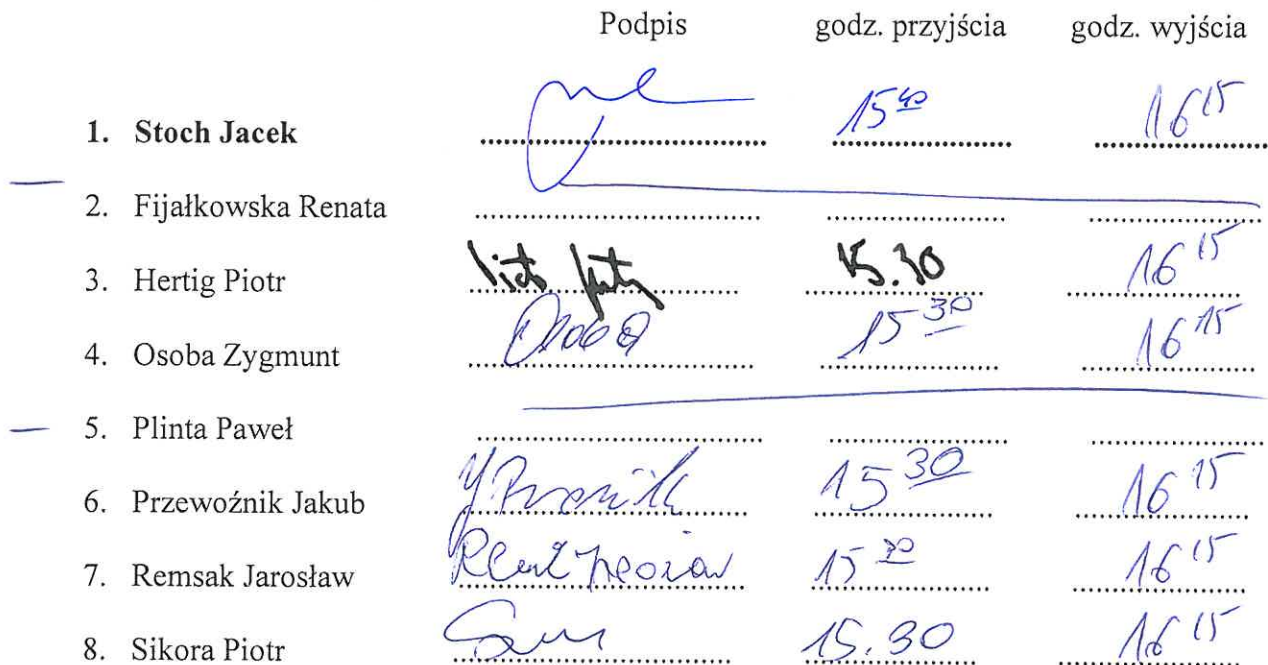 Podpis godz. przyjścia godz. wyjścia
1. Stoch Jacek 15 16 15
2. Fijałkowska Renata
3. Hertig Piotr 15.30 16 15
4. Osoba Zygmunt Osoba 15 30 16 15
5. Plinta Paweł
6. Przewoźnik Jakub 15 30 16 15
7. Remsak Jarosław 15 30 16 15
8. Sikora Piotr 15.30 16 15